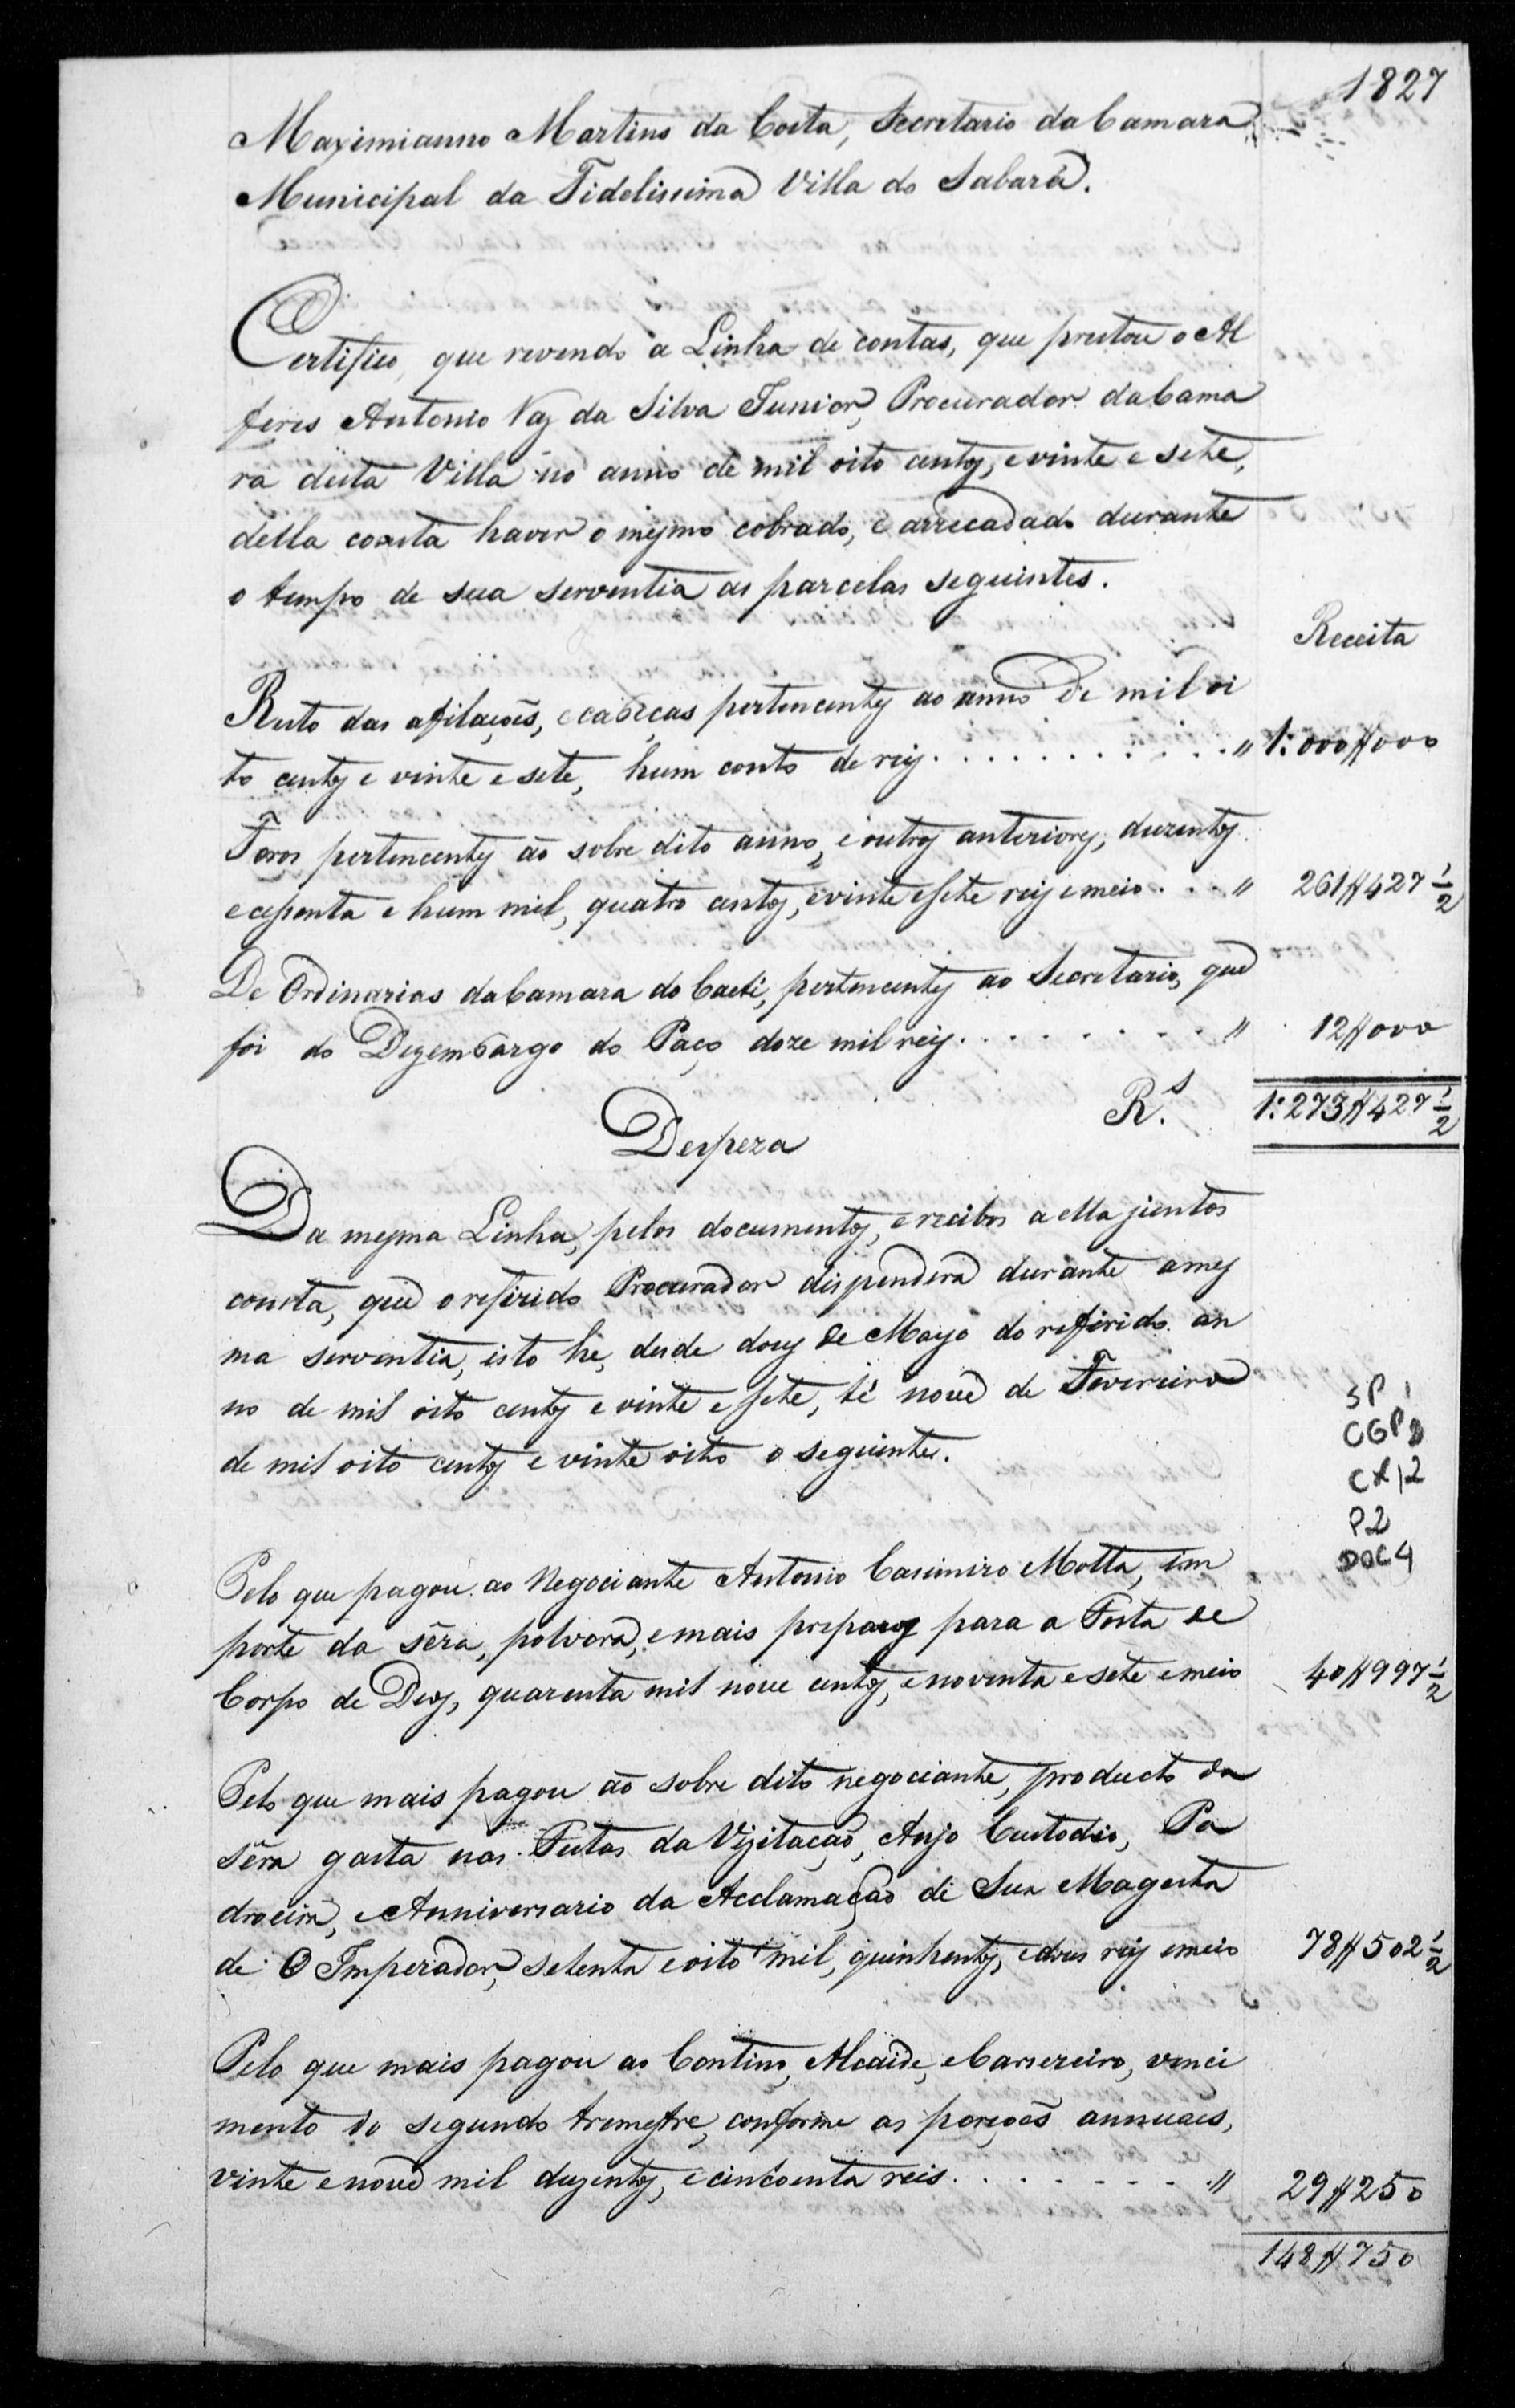 1827
Maximianno Martins da Costa, Secretario da Camara
Municipal da Fidelissima Villa do Sabará.
Certifico, que revendo a Linha de contas, que prestou o Al
feres Antonio Vaz da Silva Junior, Procurador da Cama
ra desta Villa no anno de mil oito centos, e vinte e sete,
della consta haver o mesmo cobrado, e arrecadado durante
o tempo de sua serventia as parcelas seguintes.
Receita
Resto das afilaçoẽs, e cabeças pertencentes ao anno de mil oi
to centos e vinte e sete, hum conto de reis . . . . . . . . . . " 1:000$000
Foros pertencentes ao sobre dito anno, e outros anteriores, duzentos
e cessenta e hum mil, quatro centos, e vinte e sete reis e meio . . . " 261$427 1/2
De Ordinarias da Camara do Caeté, pertencentes ao Secretario, que
foi do Dezembargo do Paço doze mil reis . . . . . . . . " 12$000
R.s 1:273$427 1/2
Despeza
Da mesma Linha, pelos documentos, e recibos a ella juntos
consta, que o referido Procurador dispendera durante a mes
ma serventia, isto he, desde dous de Mayo do referido an
no de mil oito centos e vinte e sete, té nove de Fevereiro
de mil oito centos e vinte oito o seguinte.
SP
CGP
CX 12
P2
DOC 4
Pelo que pagou ao Negociante Antonio Casimiro Motta, im
porte da sêra, polvora, e mais preparos para a Festa de
Corpo de Deos, quarenta mil nove centos, e noventa e sete e meio 40$997 1/2
Pelo que mais pagou ao sobre dito negociante, producto da
sêra gasta nas Festas da Vizitação, Anjo Custodio, Pa
droeira, e Anniversario da Acclamação de Sua Magesta
de O Imperador, setenta e oito mil, quinhentos, e dous reis e meio 78$502 1/2
Pelo que mais pagou ao Contino, Alcaide, e Carsereiro, venci
mento do segundo tremestre, conforme as porçoẽs annuaes,
vinte e nove mil duzentos, e cincoenta reis . . . . . . . " 29$250
148$750